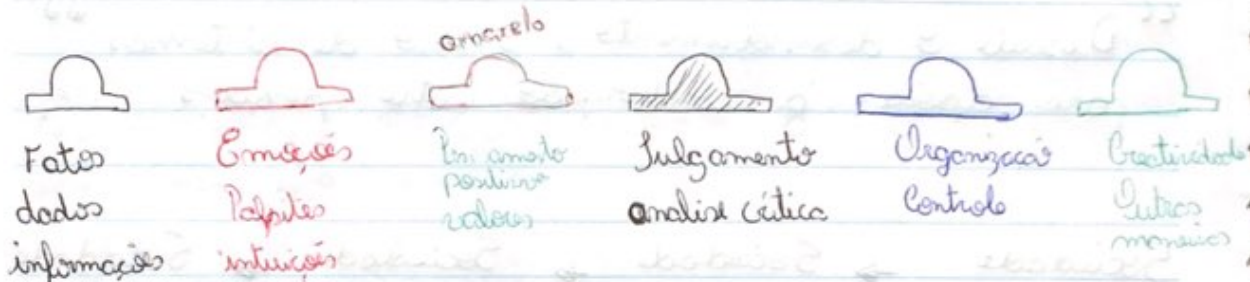 amarelo
Fatos
dados
informações
Emoções
Palpites
intuições
Pensamento
positivo
valores
Julgamento
analise crítica
Organização
Controle
Creatividade
Outras
maneiras